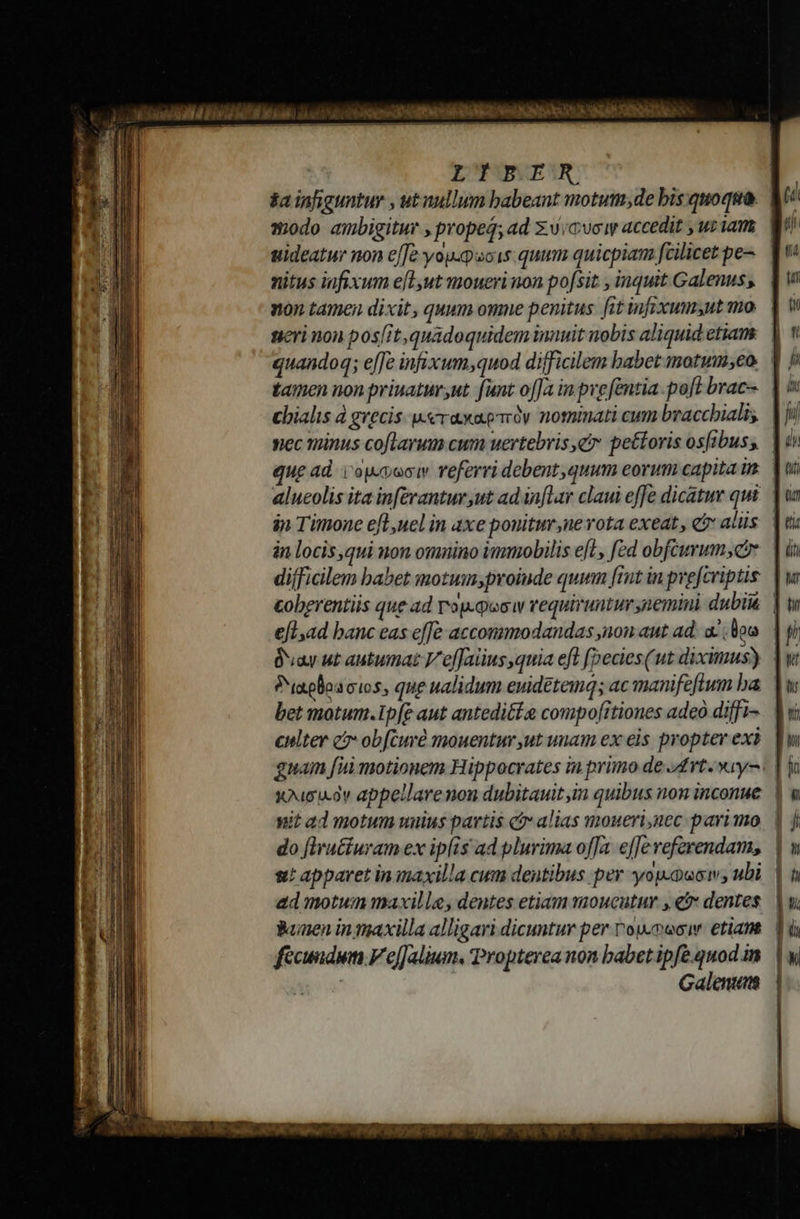 LIBER
ta infiguntur , ut nullum habeant motum, de his quoquo
modo ambigitur , propeq; ad Σύμφυσιν accedit , ut iam
uideatur non esse γόμφωσις quum quicpiam scilicet pe-
nitus infixum est, ut moueri non possit , inquit Galenus,
non tamen dixit, quum omne penitus sit infixum, ut mo
ueri non possit, quãdoquidem innuit nobis aliquid etiam
quandoq; esse infixum, quod difficilem habet motum, eo
tamen non priuatur, ut sunt ossa in præsentia post brac-
chialis à grecis μετακαρπιόν nominati cum bracchialis,
nec minus costarum cum uertebris, & pectoris ossibus,
que ad γόμφωσιν referri debent, quum eorum capita in
alueolis ita inserantur, ut ad instar claui esse dicãtur qui
in Timone est, uel in axe ponitur, ne rota exeat, & aliis
in locis, qui non omnino immobilis est, sed obscurum, &
difficilem habet motum, proinde quum sint in prescriptis
coherentiis que ad Γόμφωσιν requiruntur, nemini dubiũ
est, ad hanc eas esse accommodandas, non aut ad
ut autumat Vessalius, quia est species (ut diximus)
que ualidum euidẽtemq; ac manifestum ha
bet motum. Ipse aut antedictæ compositiones adeò diffi-
culter & obscurè mouentur, ut unam ex eis propter exi
guam sui motionem Hippocrates in primo de Art. κιγ-
κλισμόν appellare non dubitauit, in quibus non inconue
nit ad motum unius partis & alias moueri, nec pari mo
do structuram ex ipsis ad plurima ossa esse referendam,
ut apparet in maxilla cum dentibus per γόμφωσιν, ubi
ad motum maxillæ, dentes etiam mouentur , & dentes
tamen in maxilla alligari dicuntur per Γόμφωσιν etiam
secundum Vessalium. Propterea non habet ipse quod in
Galenum